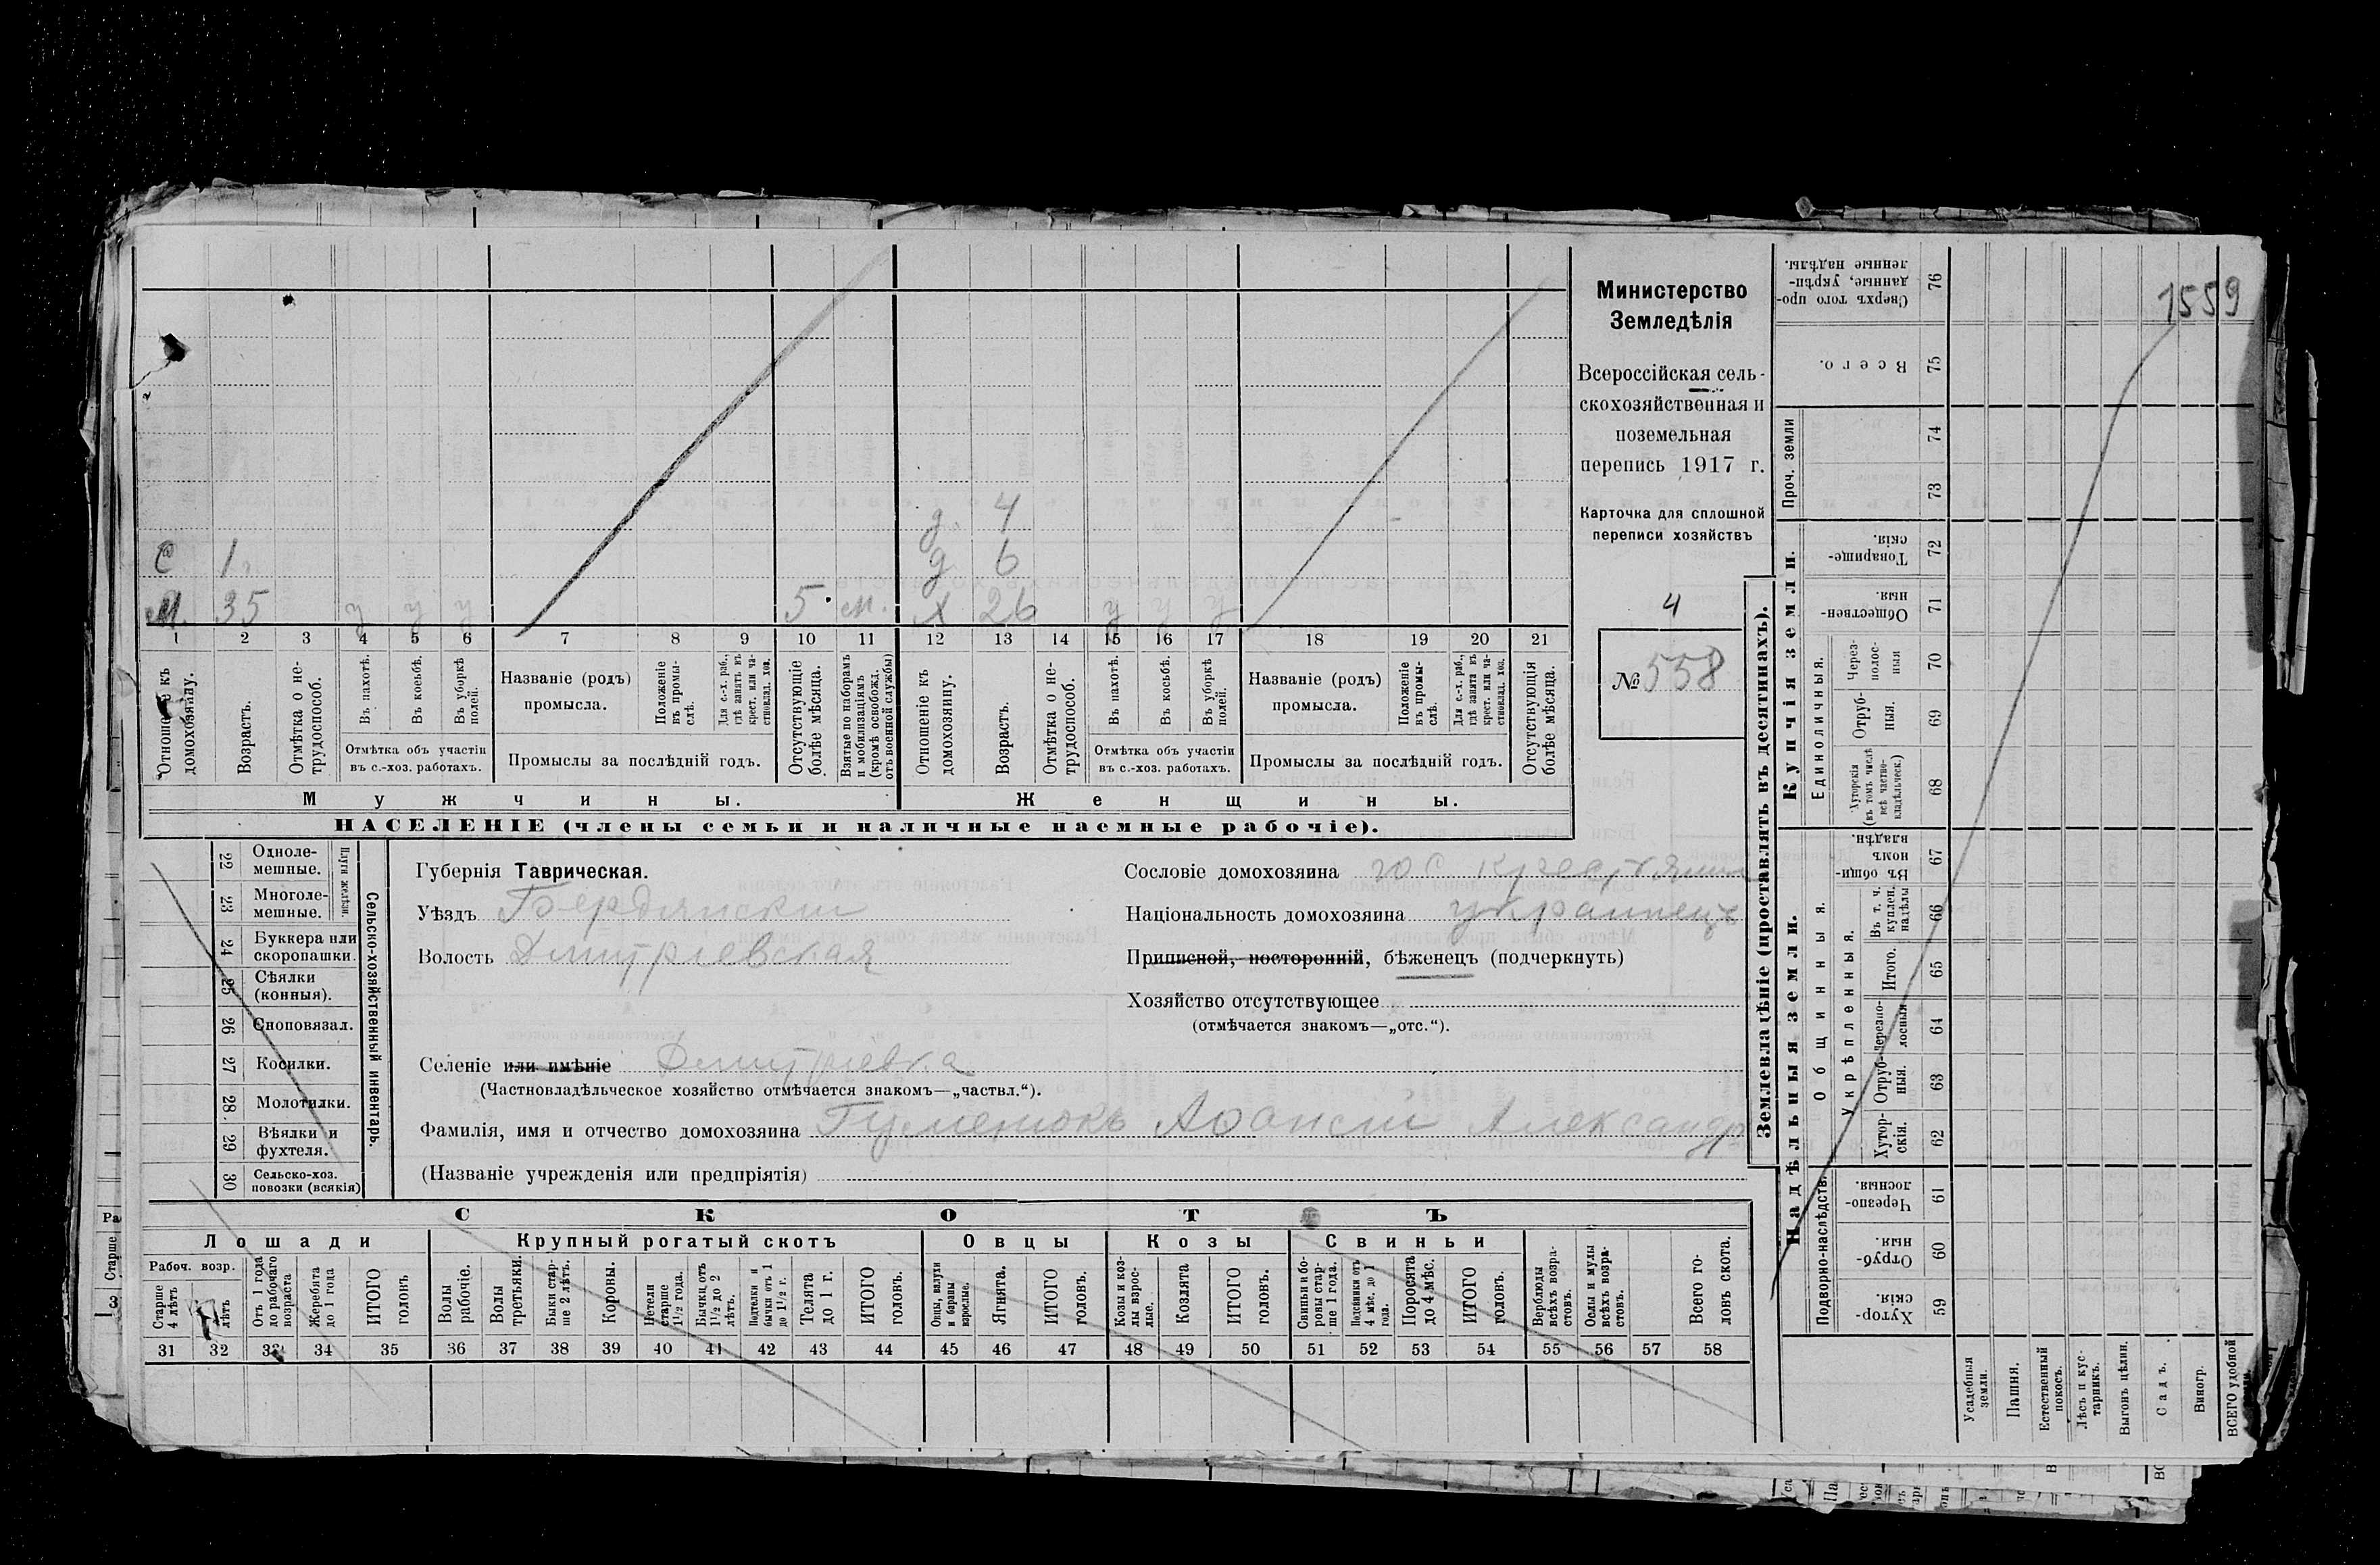 1559
Министерство
Земледѣлія
Всероссійская сель-
скохозяйственная и
поземельная
перепись 1917 г.
Карточка для сплошной
переписи хозяйствъ
4
№ 558
д. 4
С 1. д 6
М. 35 у у у 5. м. Х 26 у у у
1 2 3 4 5 6 7 8 9 10 11 12 13 14 15 16 17 18 19 20 21
Отношеніе къ домохозяину.
Возрастъ.
Отмѣтка о не-трудоспособ.
Въ пахотѣ.
Въ косьбѣ.
Въ уборкѣ полей.
Отмѣтка объ участіи
въ с.-хоз. работахъ.
Названіе (родъ)
промысла.
Положеніе въ промы-слѣ.
Для с.-х. раб., гдѣ занятъ въ крест. или ча-стновлад. хоз.
Промыслы за послѣдній годъ.
Отсутствующіе болѣе мѣсяца.
Взятые по наборамъ и мобилизаціямъ (кромѣ освобожд. отъ военной службы)
Отношеніе къ домохозяину.
Возрастъ.
Отмѣтка о не-трудоспособ.
Въ пахотѣ.
Въ косьбѣ.
Въ уборкѣ полей.
Отмѣтка объ участіи
въ с.-хоз. работахъ.
Названіе (родъ)
промысла.
Положеніе въ промы-слѣ.
Для с.-х. раб., гдѣ занята въ крест. или ча-стновлад. хоз.
Промыслы за послѣдній годъ.
Отсутствующія болѣе мѣсяца.
Мужчины. Женщины.
НАСЕЛЕНІЕ (члены семьи и наличные наемные рабочіе).
22 Одноле-мешные.
23 Многоле-мешные.
Плуги желѣзн.
24 Буккера или скоропашки.
25 Сѣялки (конныя).
26 Сноповязал.
27 Косилки.
28. Молотилки.
29 Вѣялки и фухтеля.
30 Сельско-хоз. повозки (всякія)
Сельско-хозяйственный инвентарь.
Губернія Таврическая.
Уѣздъ Бердянскій
Волость Дмитріевская
Селеніе или имѣніе Дмитріевка
(Частновладѣльческое хозяйство отмѣчается знакомъ—„частвл.“).
Фамилія, имя и отчество домохозяина Гуменюкъ Афансій Александр
(Названіе учрежденія или предпріятія)
Сословіе домохозяина крестьянин
Національность домохозяина украинецъ
Приписной, посторонній, бѣженецъ (подчеркнуть)
Хозяйство отсутствующее
(отмѣчается знакомъ—„отс.“).
СКОТЪ
Лошади Крупный рогатый скотъ Овцы Козы Свиньи
Рабоч. возр.
Старше 4 лѣтъ
лѣтъ
Отъ 1 года до рабочаго возраста
Жеребята до 1 года
ИТОГО головъ
Волы рабочіе.
Волы третьяки.
Быки стар-ше 2 лѣтъ.
Коровы.
Нетели старше 1½ года.
Бычки отъ 1½ до 2 лѣтъ.
Нетелки и бычки отъ 1 до 1½ г.
Телята до 1 г.
ИТОГО головъ.
Овцы, валухи и бараны взрослые.
Ягнята.
ИТОГО головъ.
Козы и коз-лы взрос-лые.
Козлята
ИТОГО головъ.
Свиньи и бо-ровы стар-ше 1 года.
Подсвинки отъ 4 мѣс. до 1 года.
Поросята до 4 мѣс.
ИТОГО головъ.
Верблюды всѣхъ возра-стовъ.
Ослы и мулы всѣхъ возра-стовъ.
Всего го-ловъ скота.
31 32 33 34 35 36 37 38 39 40 41 42 43 44 45 46 47 48 49 50 51 52 53 54 55 56 57 58
Землевладѣніе (проставлять въ десятинахъ).
Купчія земли.
Надѣльныя земли.
Сверхъ того про-данные, укрѣп-ленные надѣлы. 76
Всего. 75
Проч. земли 74
73
Товарище-скія. 72
Обществен-ныя. 71
Единоличныя.
Через-полос-ныя 70
Отруб-ныя. 69
Хуторскія (въ томъ числѣ всѣ частно-владѣльческ.) 68
Общинныя.
Въ общи-номъ владѣн. 67
Укрѣпленныя.
Въ т. ч. куплен. надѣлы 66
Итого. 65
Черезпо-лосныя 64
Отруб-ныя. 63
Хутор-скія. 62
Подворно-наслѣдств.
Черезпо-лосныя. 61
Отруб-ныя. 60
Хутор-скія. 59
Усадебныя земли.
Пашня.
Естественный покосъ.
Лѣсъ и кус-тарникъ.
Выгонъ цѣлин.
Садъ.
Виногр.
ВСЕГО удобной